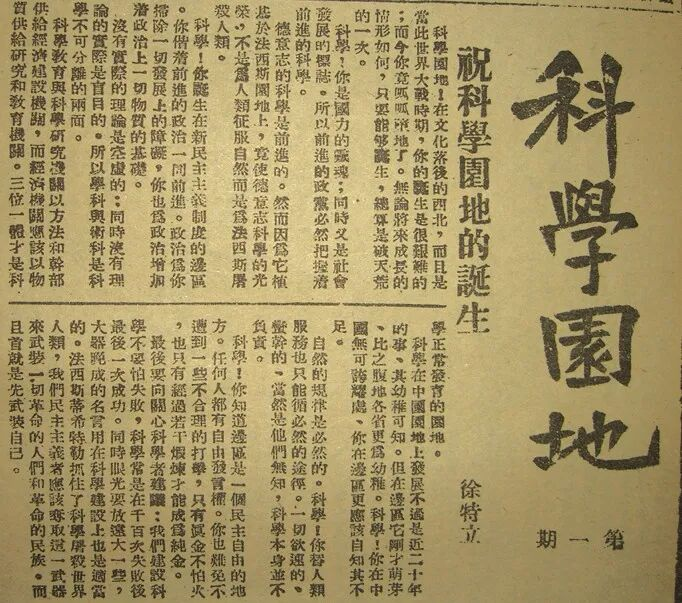 科學園地
第一期
祝科學園地的誕生
徐特立
科學園地!在文化落後的西北,而且是
當此世界大戰時期,你的誕生是很艱難的
;而今你竟呱呱墜地了。無論將來成長的
情形如何,只要能够誕生,總算是破天荒
的一次。
科學!你是國力的靈魂;同時又是社會
發展的標誌。所以前進的政黨必然把握着
前進的科學。
德意志的科學是前進的。然而因爲它植
基於法西斯園地上,竟使德意志科學的光
榮,不是爲人類征服自然而是爲法西斯屠
殺人類。
科學!你誕生在新民主主義制度的邊區
。你偕着前進的政治一同前進。政治爲你
掃除一切發展上的障礙,你也爲政治增加
着政治上一切物質的基礎。
沒有實際的理論是空虛的;同時沒有理
論的實際是盲目的。所以學科與術科是科
學不可分離的兩面。
科學教育與科學研究機關以方法和幹部
供給經濟建設機關,而經濟機關應該以物
質供給研究和教育機關。三位一體才是科
學正常發育的園地。
科學在中國園地上發展不過是近二十年
的事、其幼稚可知。但在邊區它剛才萌芽
、比之腹地各省更爲幼稚。科學!你在中
國無可誇耀處、你在邊區更應該自知其不
足。
自然的規律是必然的。科學!你替人類
服務也只能循必然的途徑。一切欲速的、
蠻幹的、當然是他們無知,科學本身並不
負責。
科學!你知道邊區是一個民主自由的地
方。任何人都有自由發言權。你也難免不
遭到一些不合理的打擊,只有眞金不怕火
,也只有經過若干煆煉才能成爲純金。
最後要向關心科學者建議:我們建設科
學不要怕失敗,科學常是在千百次失敗後
最後一次成功。同時眼光要放遠大一些,
大器晚成的名言用在科學建設上也是適當
的。法西斯蒂希特勒抓住了科學屠殺世界
人類,我們民主主義者應該奪取這一武器
來武裝一切革命的人們和革命的民族。而
且首就是先武裝自己。